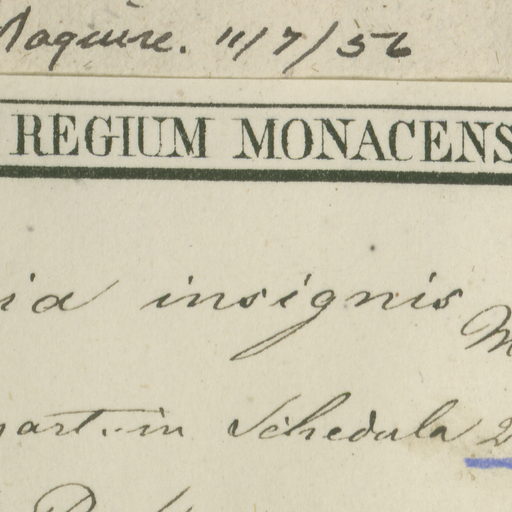 Maguire. 11/7/56
REGIUM MONACENS
ia insignis
M
art. in Schedula 2